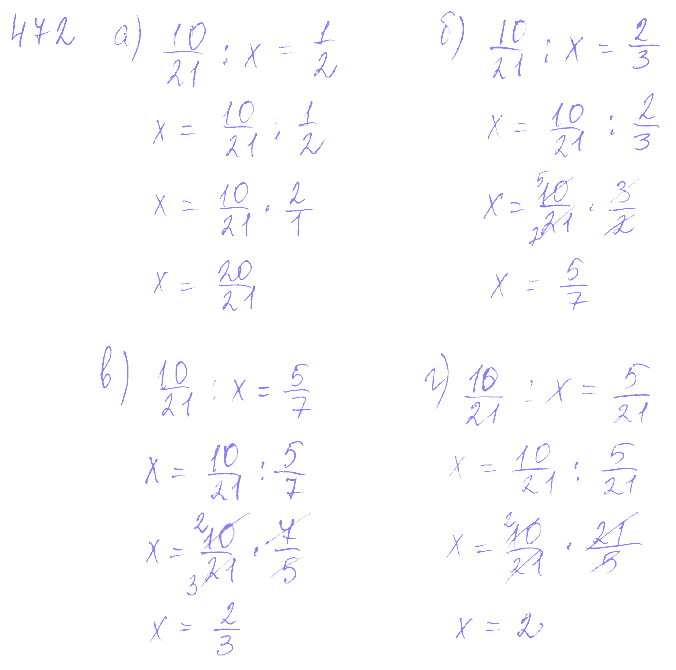 472 а) 10/21 : x = 1/2
x = 10/21 : 1/2
x = 10/21 · 2/1
x = 20/21
б) 10/21 : x = 2/3
x = 10/21 : 2/3
x = 5 10/7 21 · 3/2
x = 5/7
в) 10/21 : x = 5/7
x = 10/21 : 5/7
x = 2 10/3 21 · 7/5
x = 2/3
г) 10/21 : x = 5/21
x = 10/21 : 5/21
x = 2 10/21 · 21/5
x = 2